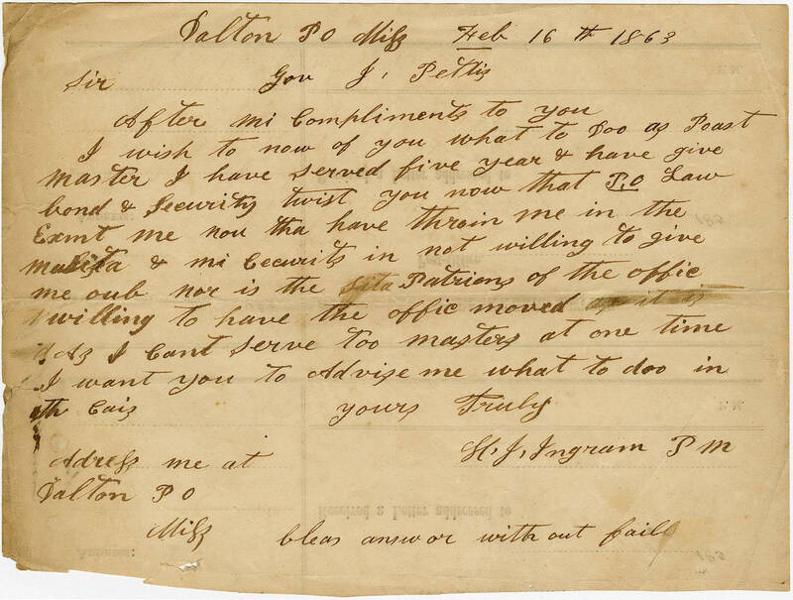 Dalton PO Miss Feb 16 th 1863
Sir Gov J. Pettis
After mi Compliments to you
I wish to now of you what to Doo as Poast
master I have served five year & have give
bond & Security twist you now that P.O Law
Exmt me nou tha have throin me in the
& mi Cecurits in not willing to give
me oub nor is the Patrions of the offic
willing to have the offic moved as it is
As I Cant Serve too masters at one time
I want you to Advise me what to doo in
th Cais yours Truly
H. J. Ingram P M
Adress me at
Dalton P O
Miss bleas answor with out faill
Received a Letter addressed to